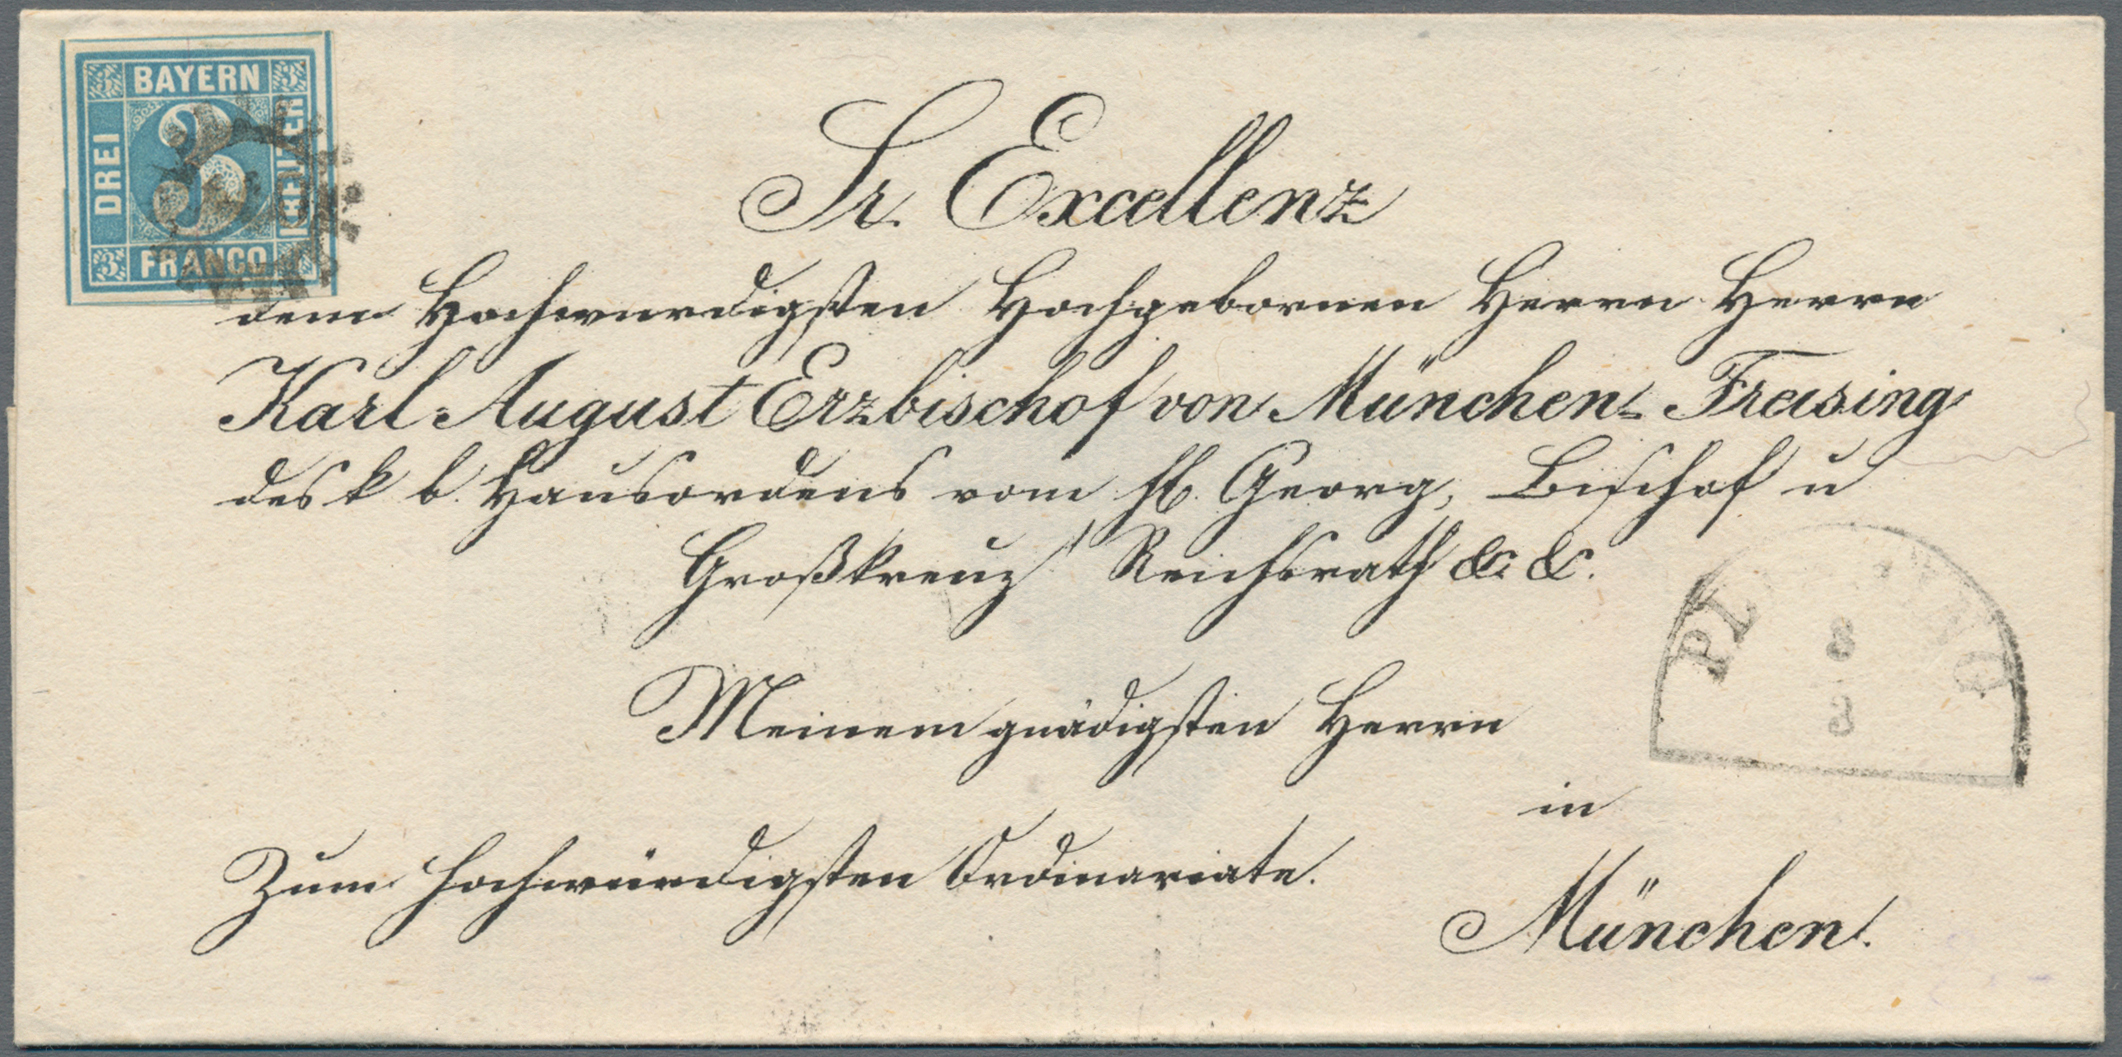 BAYERN
3 3
DREI
3
KREUZER
3
FRANCO
Sr. Excellenz
dem Hochwurdigsten Hochgebornen Herrn Herrn
Karl August Erzbischof von München-Freising
des k b. Hausordens vom hl. Georg, Bischof u
Großkreuz Reichsrath &c &c.
Meinem gnädigsten Herrn
in
Zum hochwürdigsten Ordinariate.
München.
8